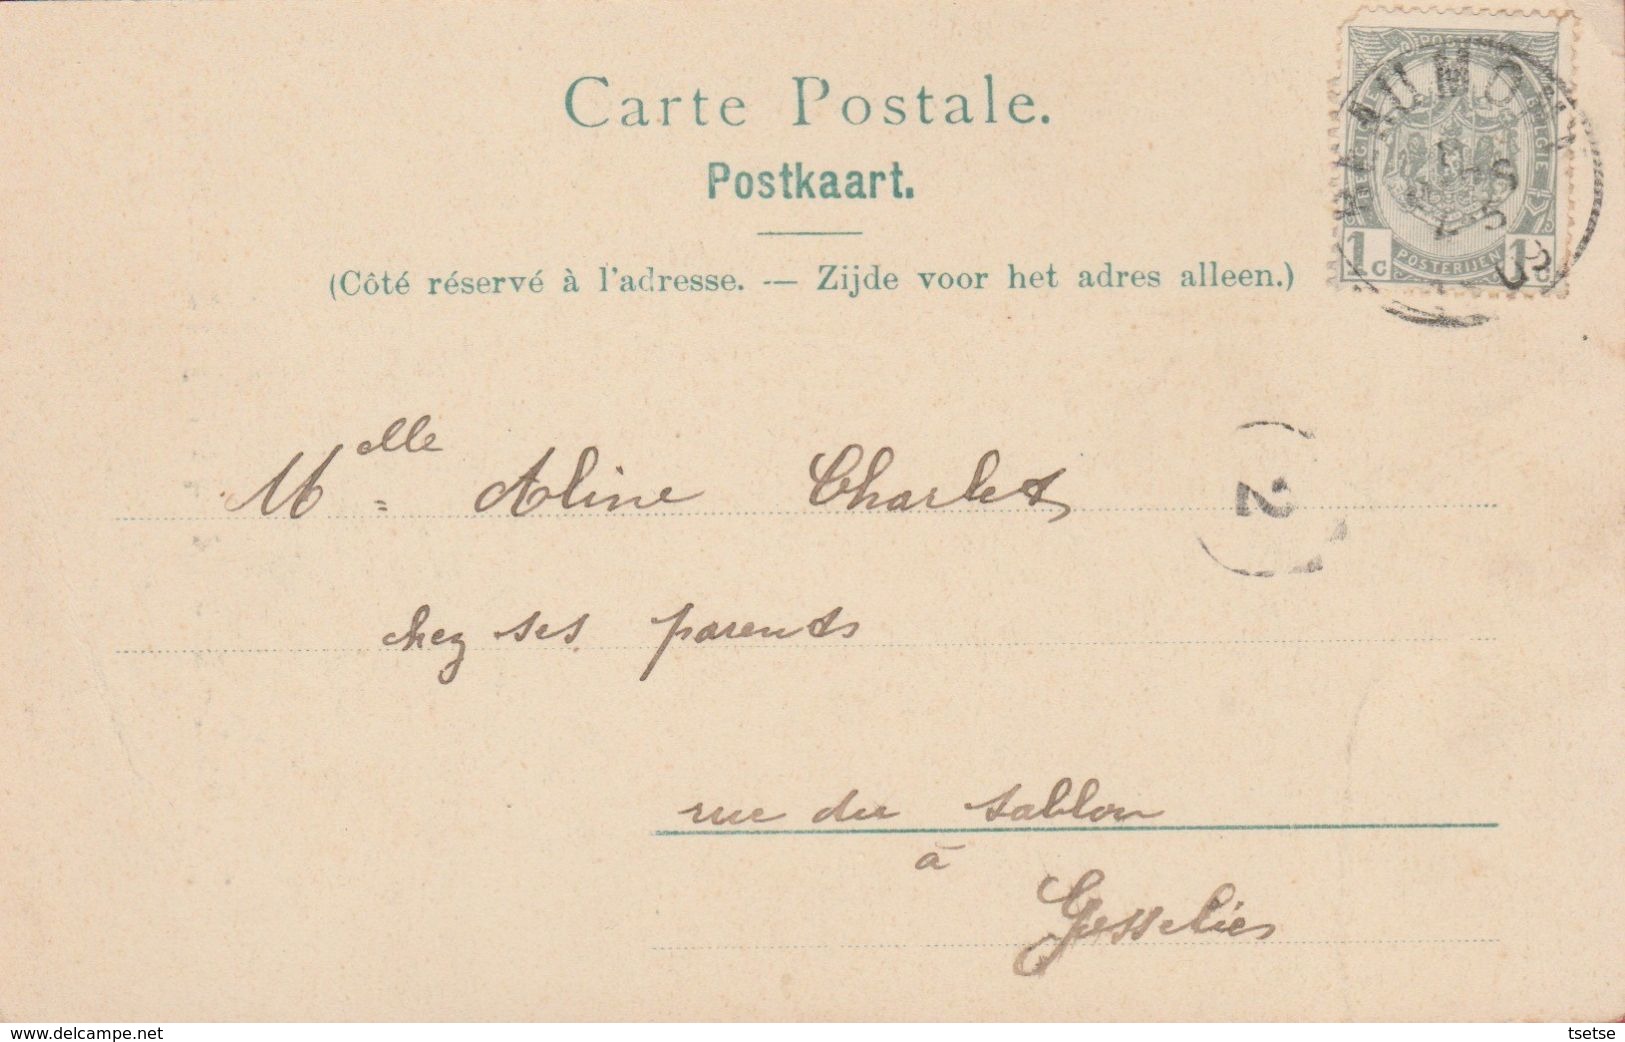 Carte Postale.
Postkaart.
(Côté réservé à l'adresse. — Zijde voor het adres alleen.)
BELGIQUE POSTES BELGIE
1c POSTERIJEN 1c
Melle Aline Charlet
2
chez ses parents
rue du sablon
à
Gosselies
www.delcampe.net
tsetse